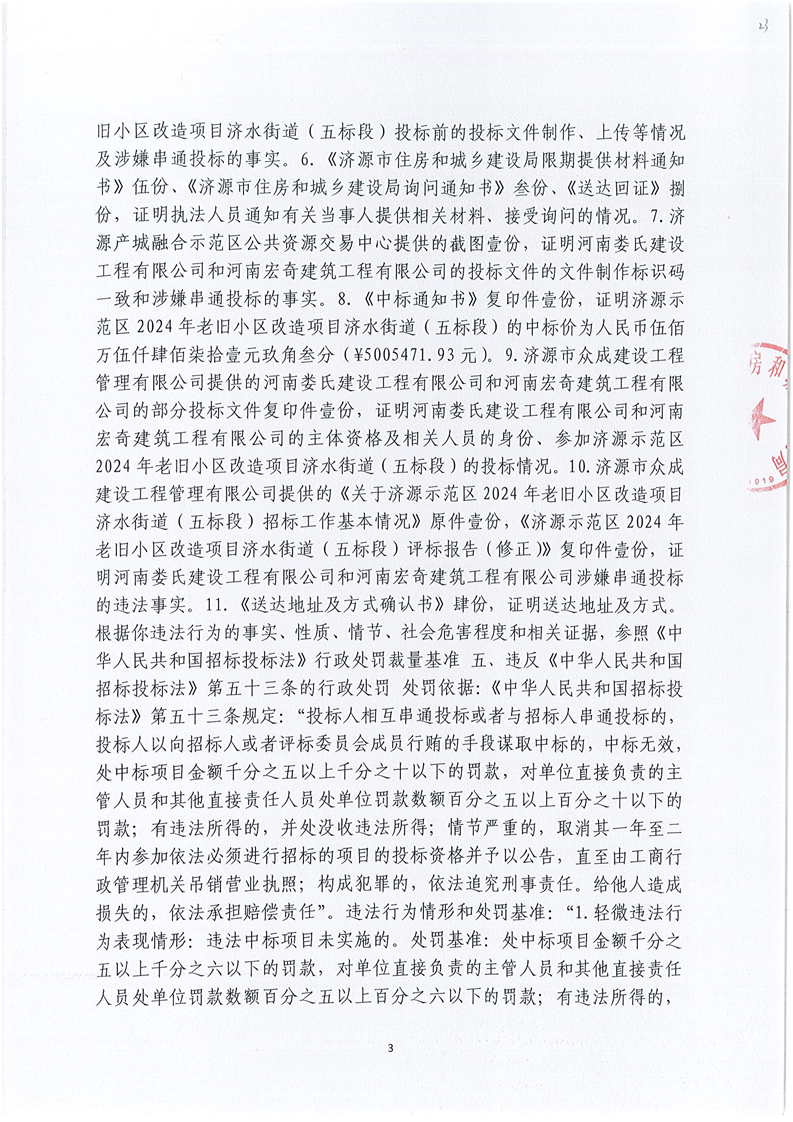 23
旧小区改造项目济水街道（五标段）投标前的投标文件制作、上传等情况
及涉嫌串通投标的事实。6.《济源市住房和城乡建设局限期提供材料通知
书》伍份、《济源市住房和城乡建设局询问通知书》叁份、《送达回证》捌
份，证明执法人员通知有关当事人提供相关材料、接受询问的情况。7.济
源产城融合示范区公共资源交易中心提供的截图壹份，证明河南娄氏建设
工程有限公司和河南宏奇建筑工程有限公司的投标文件的文件制作标识码
一致和涉嫌串通投标的事实。8.《中标通知书》复印件壹份，证明济源示
范区2024年老旧小区改造项目济水街道（五标段）的中标价为人民币伍佰
万伍仟肆佰柒拾壹元玖角叁分（¥5005471.93元）。9.济源市众成建设工程
管理有限公司提供的河南娄氏建设工程有限公司和河南宏奇建筑工程有限
公司的部分投标文件复印件壹份，证明河南娄氏建设工程有限公司和河南
宏奇建筑工程有限公司的主体资格及相关人员的身份、参加济源示范区
2024年老旧小区改造项目济水街道（五标段）的投标情况。10.济源市众成
建设工程管理有限公司提供的《关于济源示范区2024年老旧小区改造项目
济水街道（五标段）招标工作基本情况》原件壹份，《济源示范区2024年
老旧小区改造项目济水街道（五标段）评标报告（修正）》复印件壹份，证
明河南娄氏建设工程有限公司和河南宏奇建筑工程有限公司涉嫌串通投标
的违法事实。11.《送达地址及方式确认书》肆份，证明送达地址及方式。
根据你违法行为的事实、性质、情节、社会危害程度和相关证据，参照《中
华人民共和国招标投标法》行政处罚裁量基准 五、违反《中华人民共和国
招标投标法》第五十三条的行政处罚 处罚依据：《中华人民共和国招标投
标法》第五十三条规定：“投标人相互串通投标或者与招标人串通投标的，
投标人以向招标人或者评标委员会成员行贿的手段谋取中标的，中标无效，
处中标项目金额千分之五以上千分之十以下的罚款，对单位直接负责的主
管人员和其他直接责任人员处单位罚款数额百分之五以上百分之十以下的
罚款；有违法所得的，并处没收违法所得；情节严重的，取消其一年至二
年内参加依法必须进行招标的项目的投标资格并予以公告，直至由工商行
政管理机关吊销营业执照；构成犯罪的，依法追究刑事责任。给他人造成
损失的，依法承担赔偿责任”。违法行为情形和处罚基准：“1.轻微违法行
为表现情形：违法中标项目未实施的。处罚基准：处中标项目金额千分之
五以上千分之六以下的罚款，对单位直接负责的主管人员和其他直接责任
人员处单位罚款数额百分之五以上百分之六以下的罚款；有违法所得的，
房和
局
1919
3